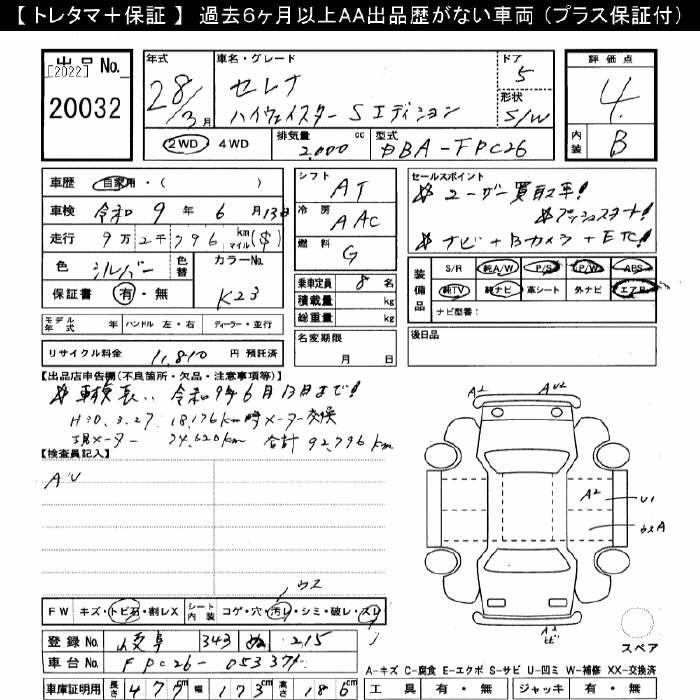 【 トレタマ＋保証 】 過去6ヶ月以上AA出品歴がない車両（プラス保証付）
出品No.
[2022]
20032
年式
28/3月
車名・グレード
セレナ
ハイウェイスター Sエディション
ドア
5
形状
S/W
評価点
4
内装
B
2WD・4WD
排気量
2,000 cc
型式
DBA-FPC26
車歴 自家用・( )
車検 令和 9年 6月13日
走行 9万2千796 km マイル ($)
色 シルバー 色替 カラーNo. K23
保証書 有・無
シフト AT
冷房 AAC
燃料 G
乗車定員 8名
積載量 kg
総重量 kg
セールスポイント
ユーザー買取車!
プッシュスタート!
ナビ+Bカメラ+ETC!
装備品
S/R 純A/W P/S P/W ABS
純TV 純ナビ 革シート 外ナビ エアB
ナビ型番:
モデル年式 年 ハンドル 左・右 ディーラー・並行
名変期限
月 日
後日品
リサイクル料金 11,810 円 預託済
【出品店申告欄(不良箇所・欠品・注意事項等)】
車検長い 令和9年6月13日まで!
H30.3.27. 18,176km時メーター交換
現メーター 74,620km 合計 92,796km
【検査員記入】
AU
A2
AU2
A2
U1
ウスA
A2
ウス
FW キズ・トビ石・割レX シート内装 コゲ・穴・汚レ・シミ・破レ・スレ
登録No. 岐阜 343 ぬ 215
車台No. FPC26-053374
車庫証明用 長さ 477 幅 173 高さ 186
スペア
A-キズ C-腐食 E-エクボ S-サビ U-凹ミ W-補修 XX-交換済
工具 有・無 ジャッキ 有・無